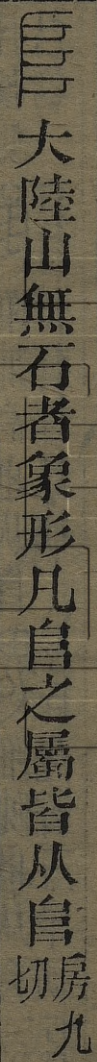 𨸏大陸山無石者象形凡𨸏之屬皆从𨸏房九切